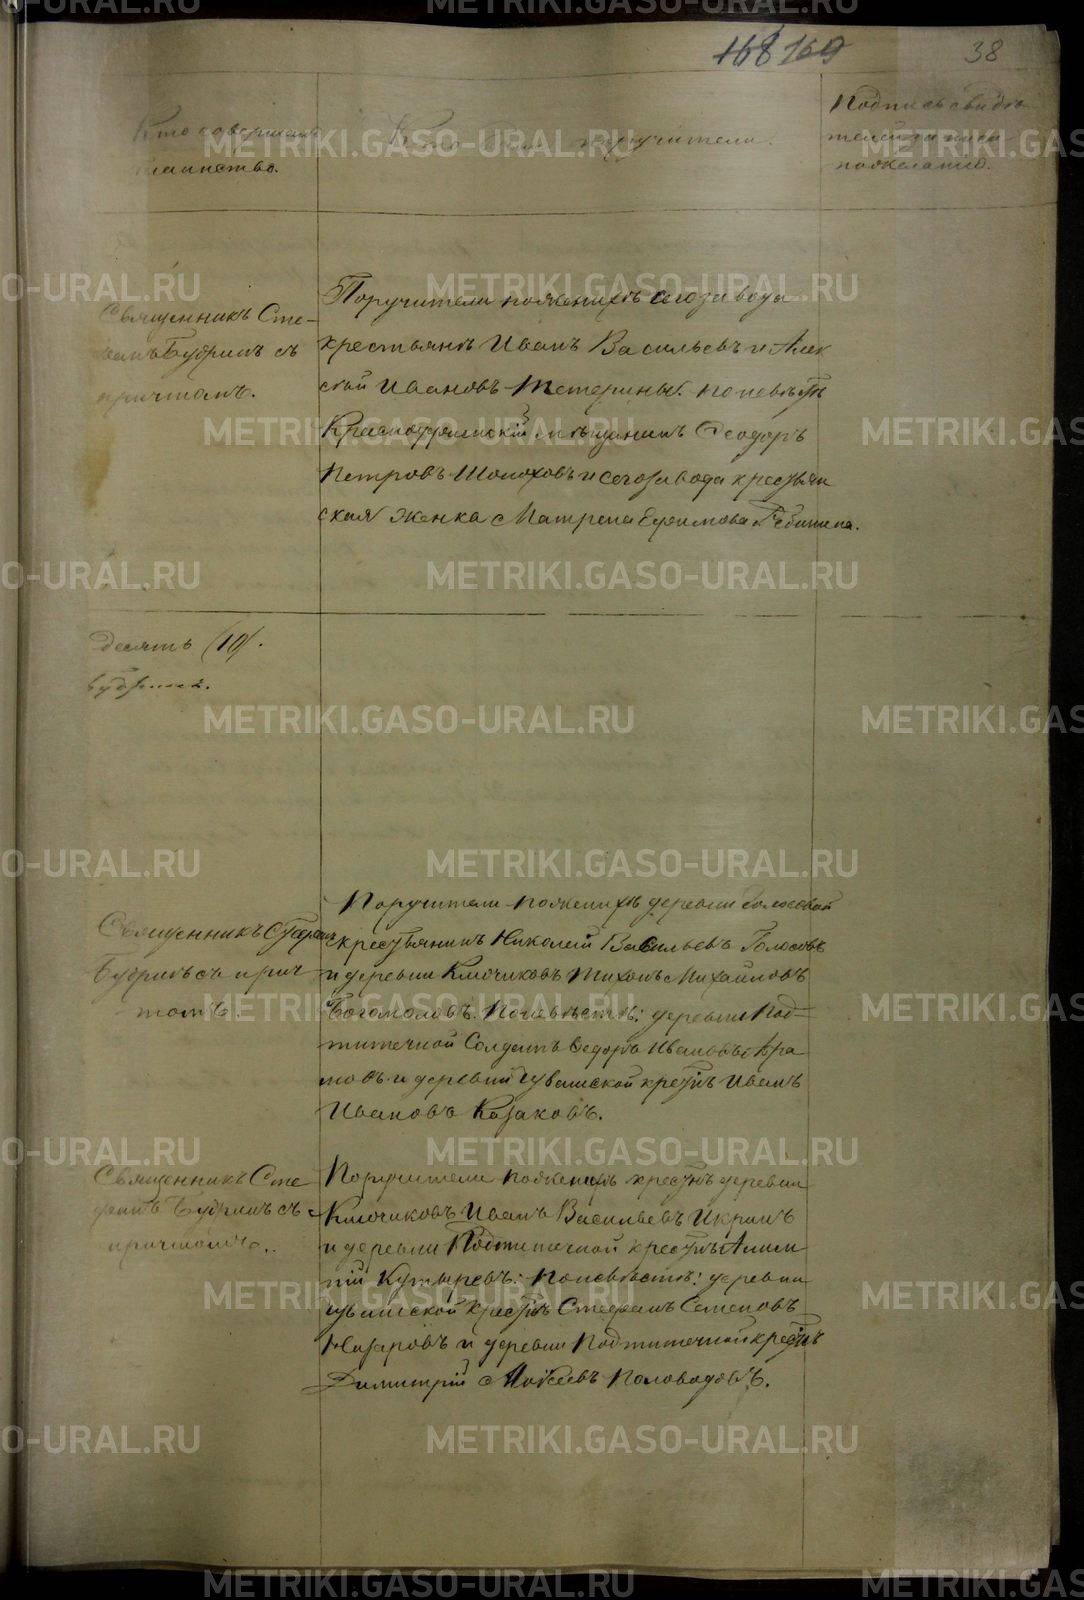 168 169
38
Кто совершалъ
таинство.
Кто были поручители.
Подпись свидѣ-
телей записи
по желанію.
Священникъ Сте-
фанъ Будринъ съ
причтомъ.
Поручители по женихѣ сего завода
крестьяне Иванъ Васильевъ и Алек
сѣй Ивановъ Тетерины. По невѣстѣ
Красноуфимскій мѣщанинъ Феодоръ
Петровъ Шолоховъ и сего завода крестьян
ская женка Матрена Ефимова
десять (10).
Будринъ.
Священникъ Стефанъ
Будринъ съ прич
томъ.
Поручители по женихѣ деревни Голосовой
крестьянинъ Николай Васильевъ Голосовъ
и деревни Ключиковъ Тихонъ Михайловъ
Богомоловъ. По невѣстѣ: деревни Под-
титечной Солдатъ Федоръ Ивановъ
и деревни Чувашской крестнъ Иванъ
Ивановъ Казаковъ.
Священникъ Сте
фанъ Будринъ съ
причтомъ.
Поручители по женихѣ крестнъ деревни
Ключиковъ Иванъ Васильевъ Икринъ
и деревни Подтитечной крестнъ
Кутыревъ: По невѣстѣ: деревни
Чувашской крестнъ Стефанъ Семеновъ
Назаровъ и деревни Подтитечной крестнъ
Димитрій Мокеевъ Половодовъ.
METRIKI.GASO-URAL.RU